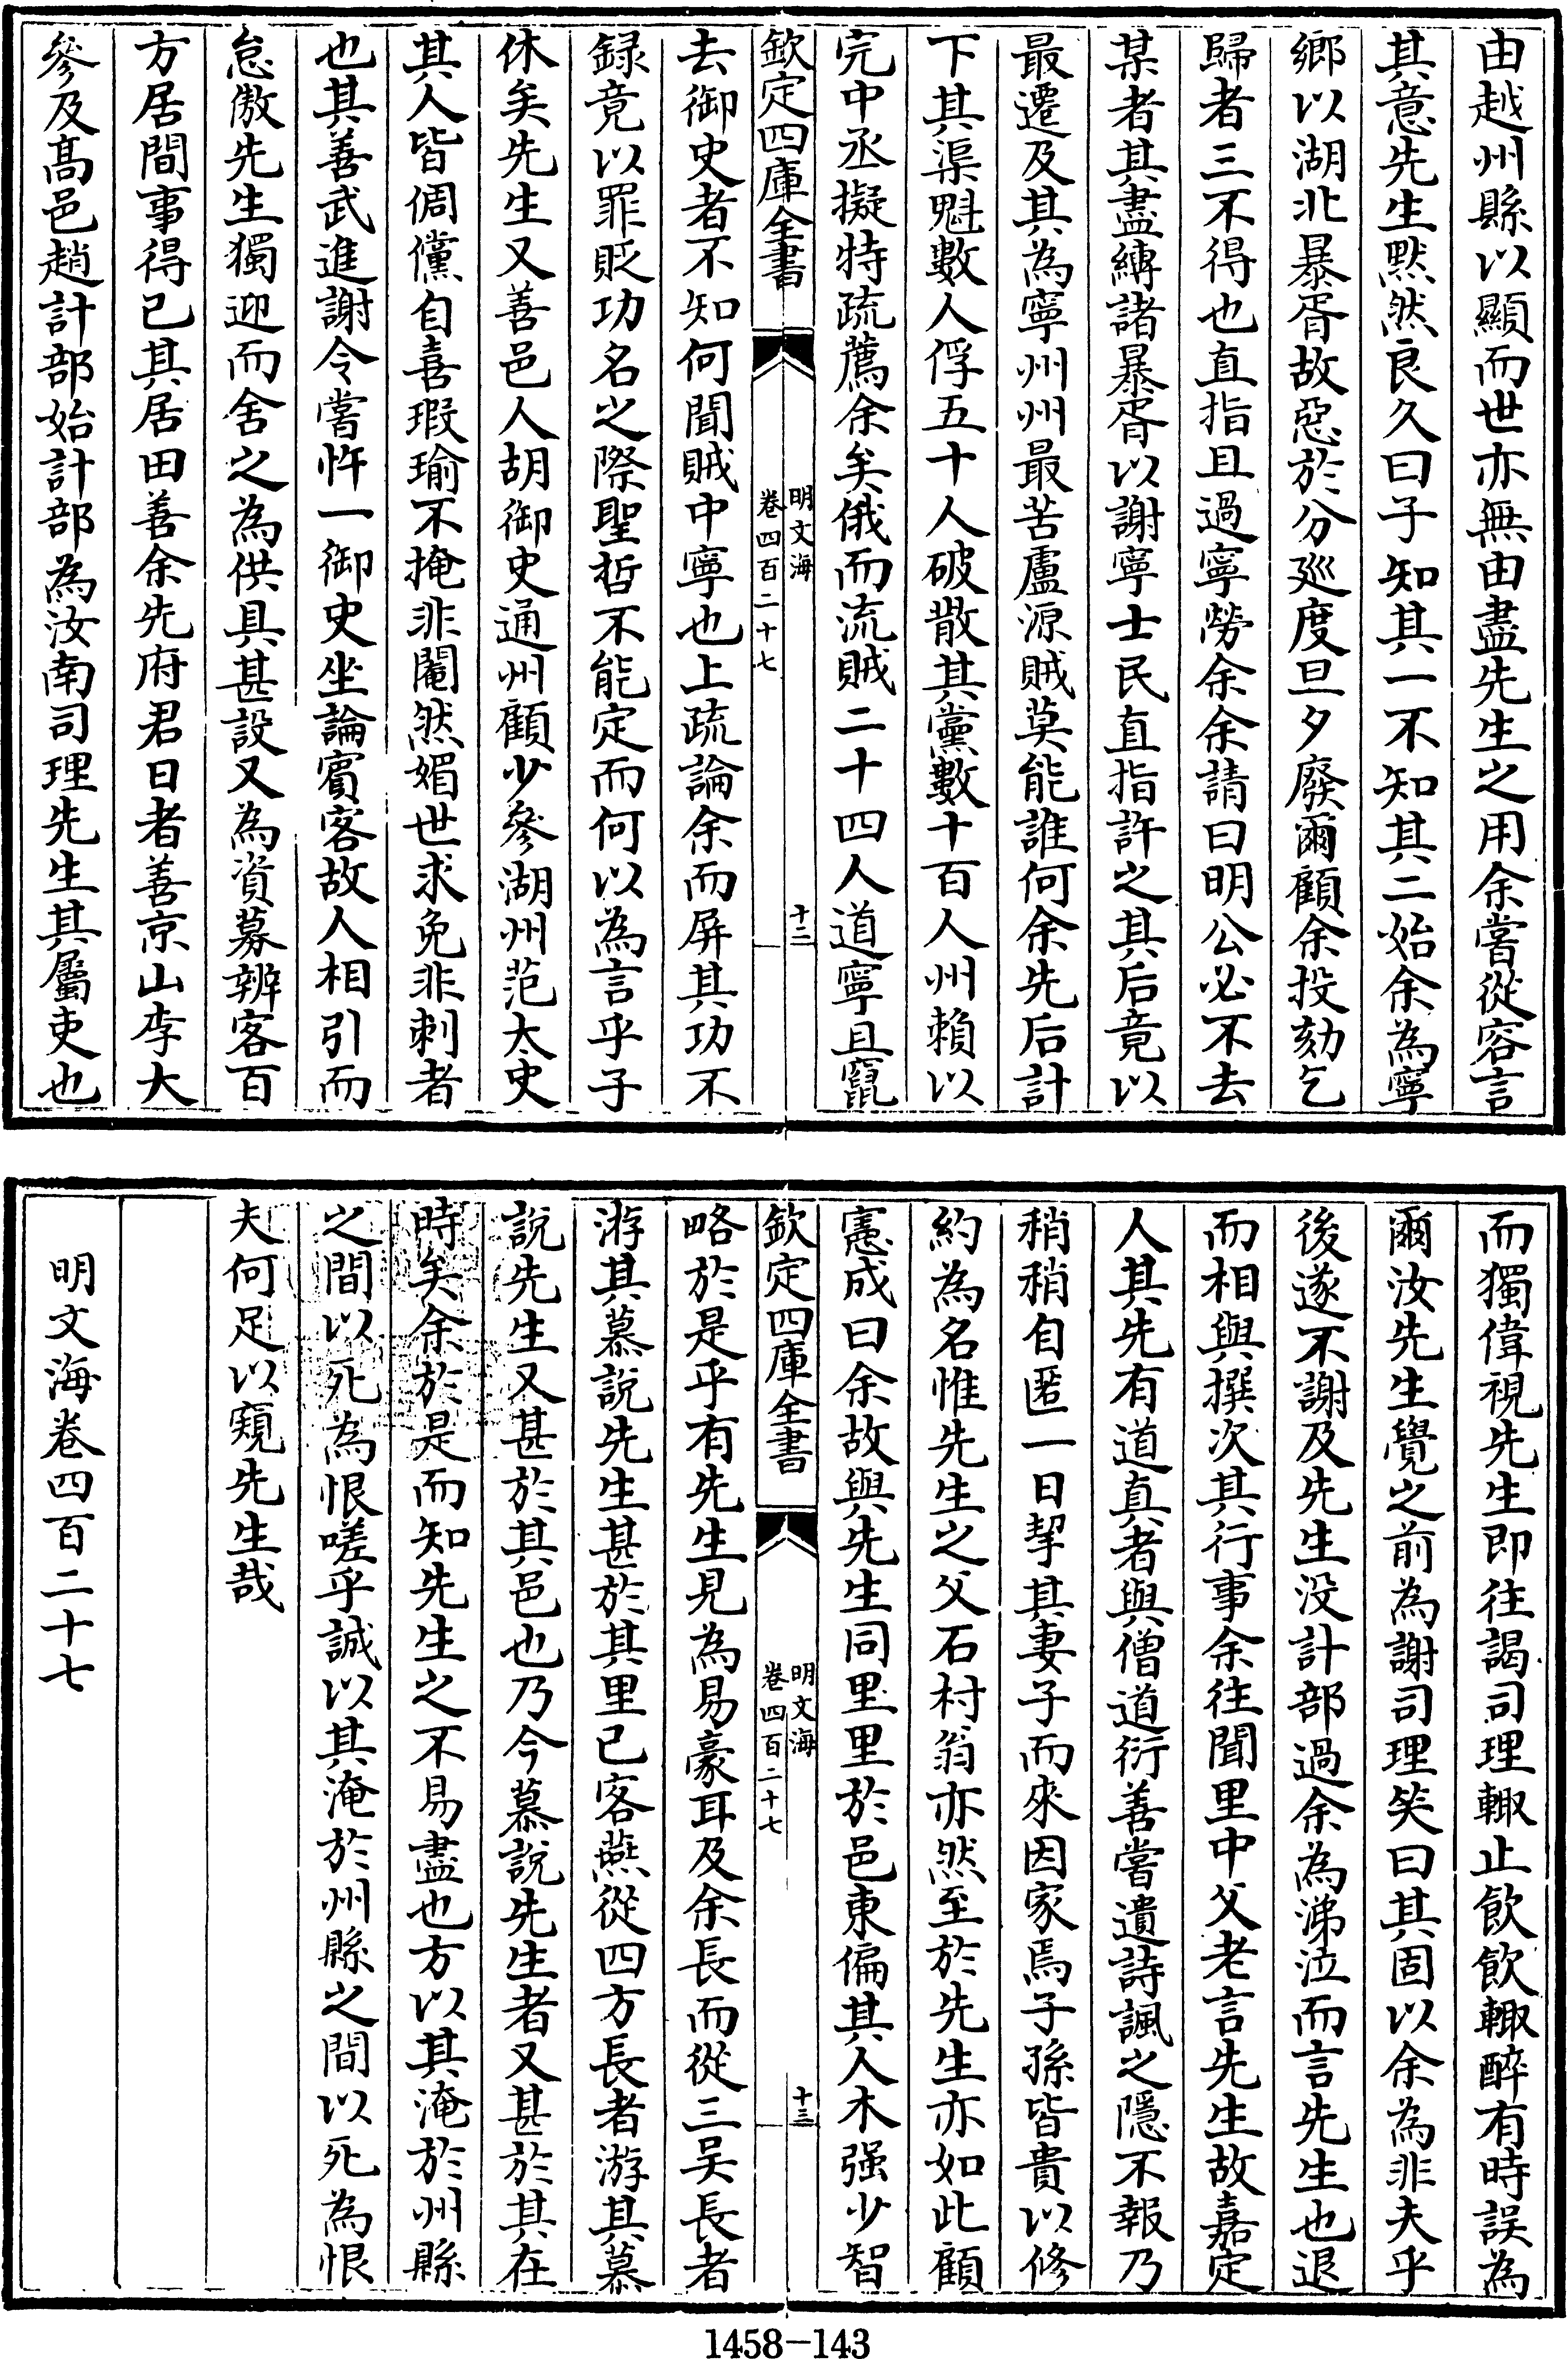 由越州縣以顯而世亦無由盡先生之用余嘗從容言
其意先生默然良久曰子知其一不知其二始余為寧
鄉以湖北暴胥故惡於分廵度旦夕廢爾顧余投劾乞
歸者三不得也直指且過寧勞余余請曰明公必不去
某者其盡縛諸暴胥以謝寧士民直指許之其后竟以
最遷及其為寧州州最苦盧源賊莫能誰何余先后計
下其渠魁數人俘五十人破散其黨數十百人州賴以
完中丞擬特疏薦余矣俄而流賊二十四人道寧且竄
欽定四庫全書
明文海
卷四百二十七
十二
去御史者不知何聞賊中寧也上疏論余而屏其功不
録竟以罪貶功名之際聖哲不能定而何以為言乎子
休矣先生又善邑人胡御史通州顧少參湖州范大史
其人皆倜儻自喜瑕瑜不掩非閹然媚世求免非刺者
也其善武進謝令嘗忤一御史坐論賓客故人相引而
怠傲先生獨迎而舍之為供具甚設又為資募辨客百
方居間事得已其居田善余先府君日者善京山李大
參及髙邑趙計部始計部為汝南司理先生其屬吏也
而獨偉視先生即往謁司理輙止飲飲輙醉有時誤為
爾汝先生覺之前為謝司理笑曰其固以余為非夫乎
後遂不謝及先生没計部過余為涕泣而言先生也退
而相與撰次其行事余往聞里中父老言先生故嘉定
人其先有道真者與僧道衍善嘗遺詩諷之隱不報乃
稍稍自匿一日挈其妻子而來因家焉子孫皆貴以修
約為名惟先生之父石村翁亦然至於先生亦如此顧
憲成曰余故與先生同里里於邑東偏其人木强少智
欽定四庫全書
明文海
卷四百二十七
十三
略於是乎有先生見為易豪耳及余長而從三吴長者
游其慕説先生甚於其里已客燕從四方長者游其慕
説先生又甚於其邑也乃今慕説先生者又甚於其在
時矣余於是而知先生之不易盡也方以其淹於州縣
之間以死為恨嗟乎誠以其淹於州縣之間以死為恨
夫何足以窺先生哉
明文海卷四百二十七
1458-143